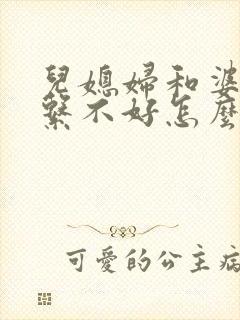 兒媳婦和婆
繫不好怎麼
可愛的公主病